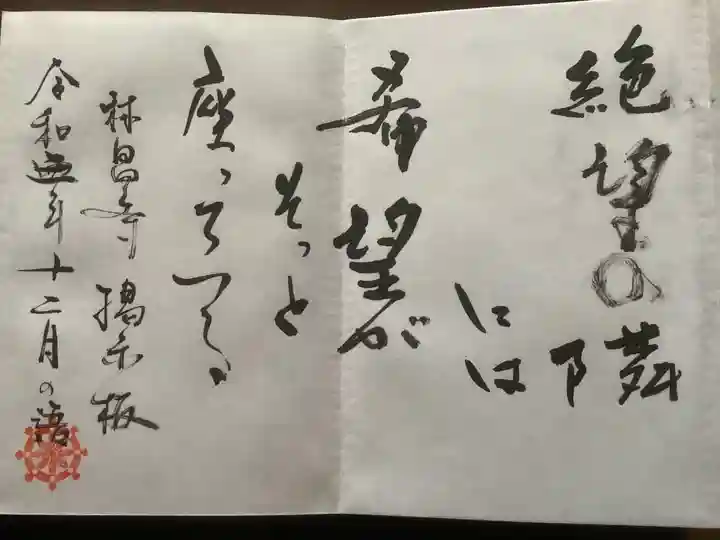 絶望の隣
には
希望が
そっと
座ってる
林昌寺 掲示板
令和五年十二月の語